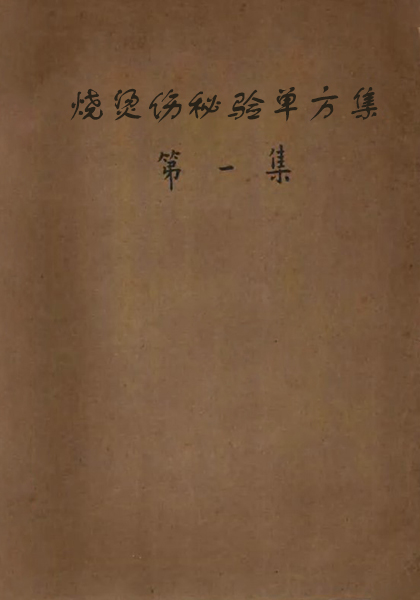 烧烫伤秘验单方集
第一集